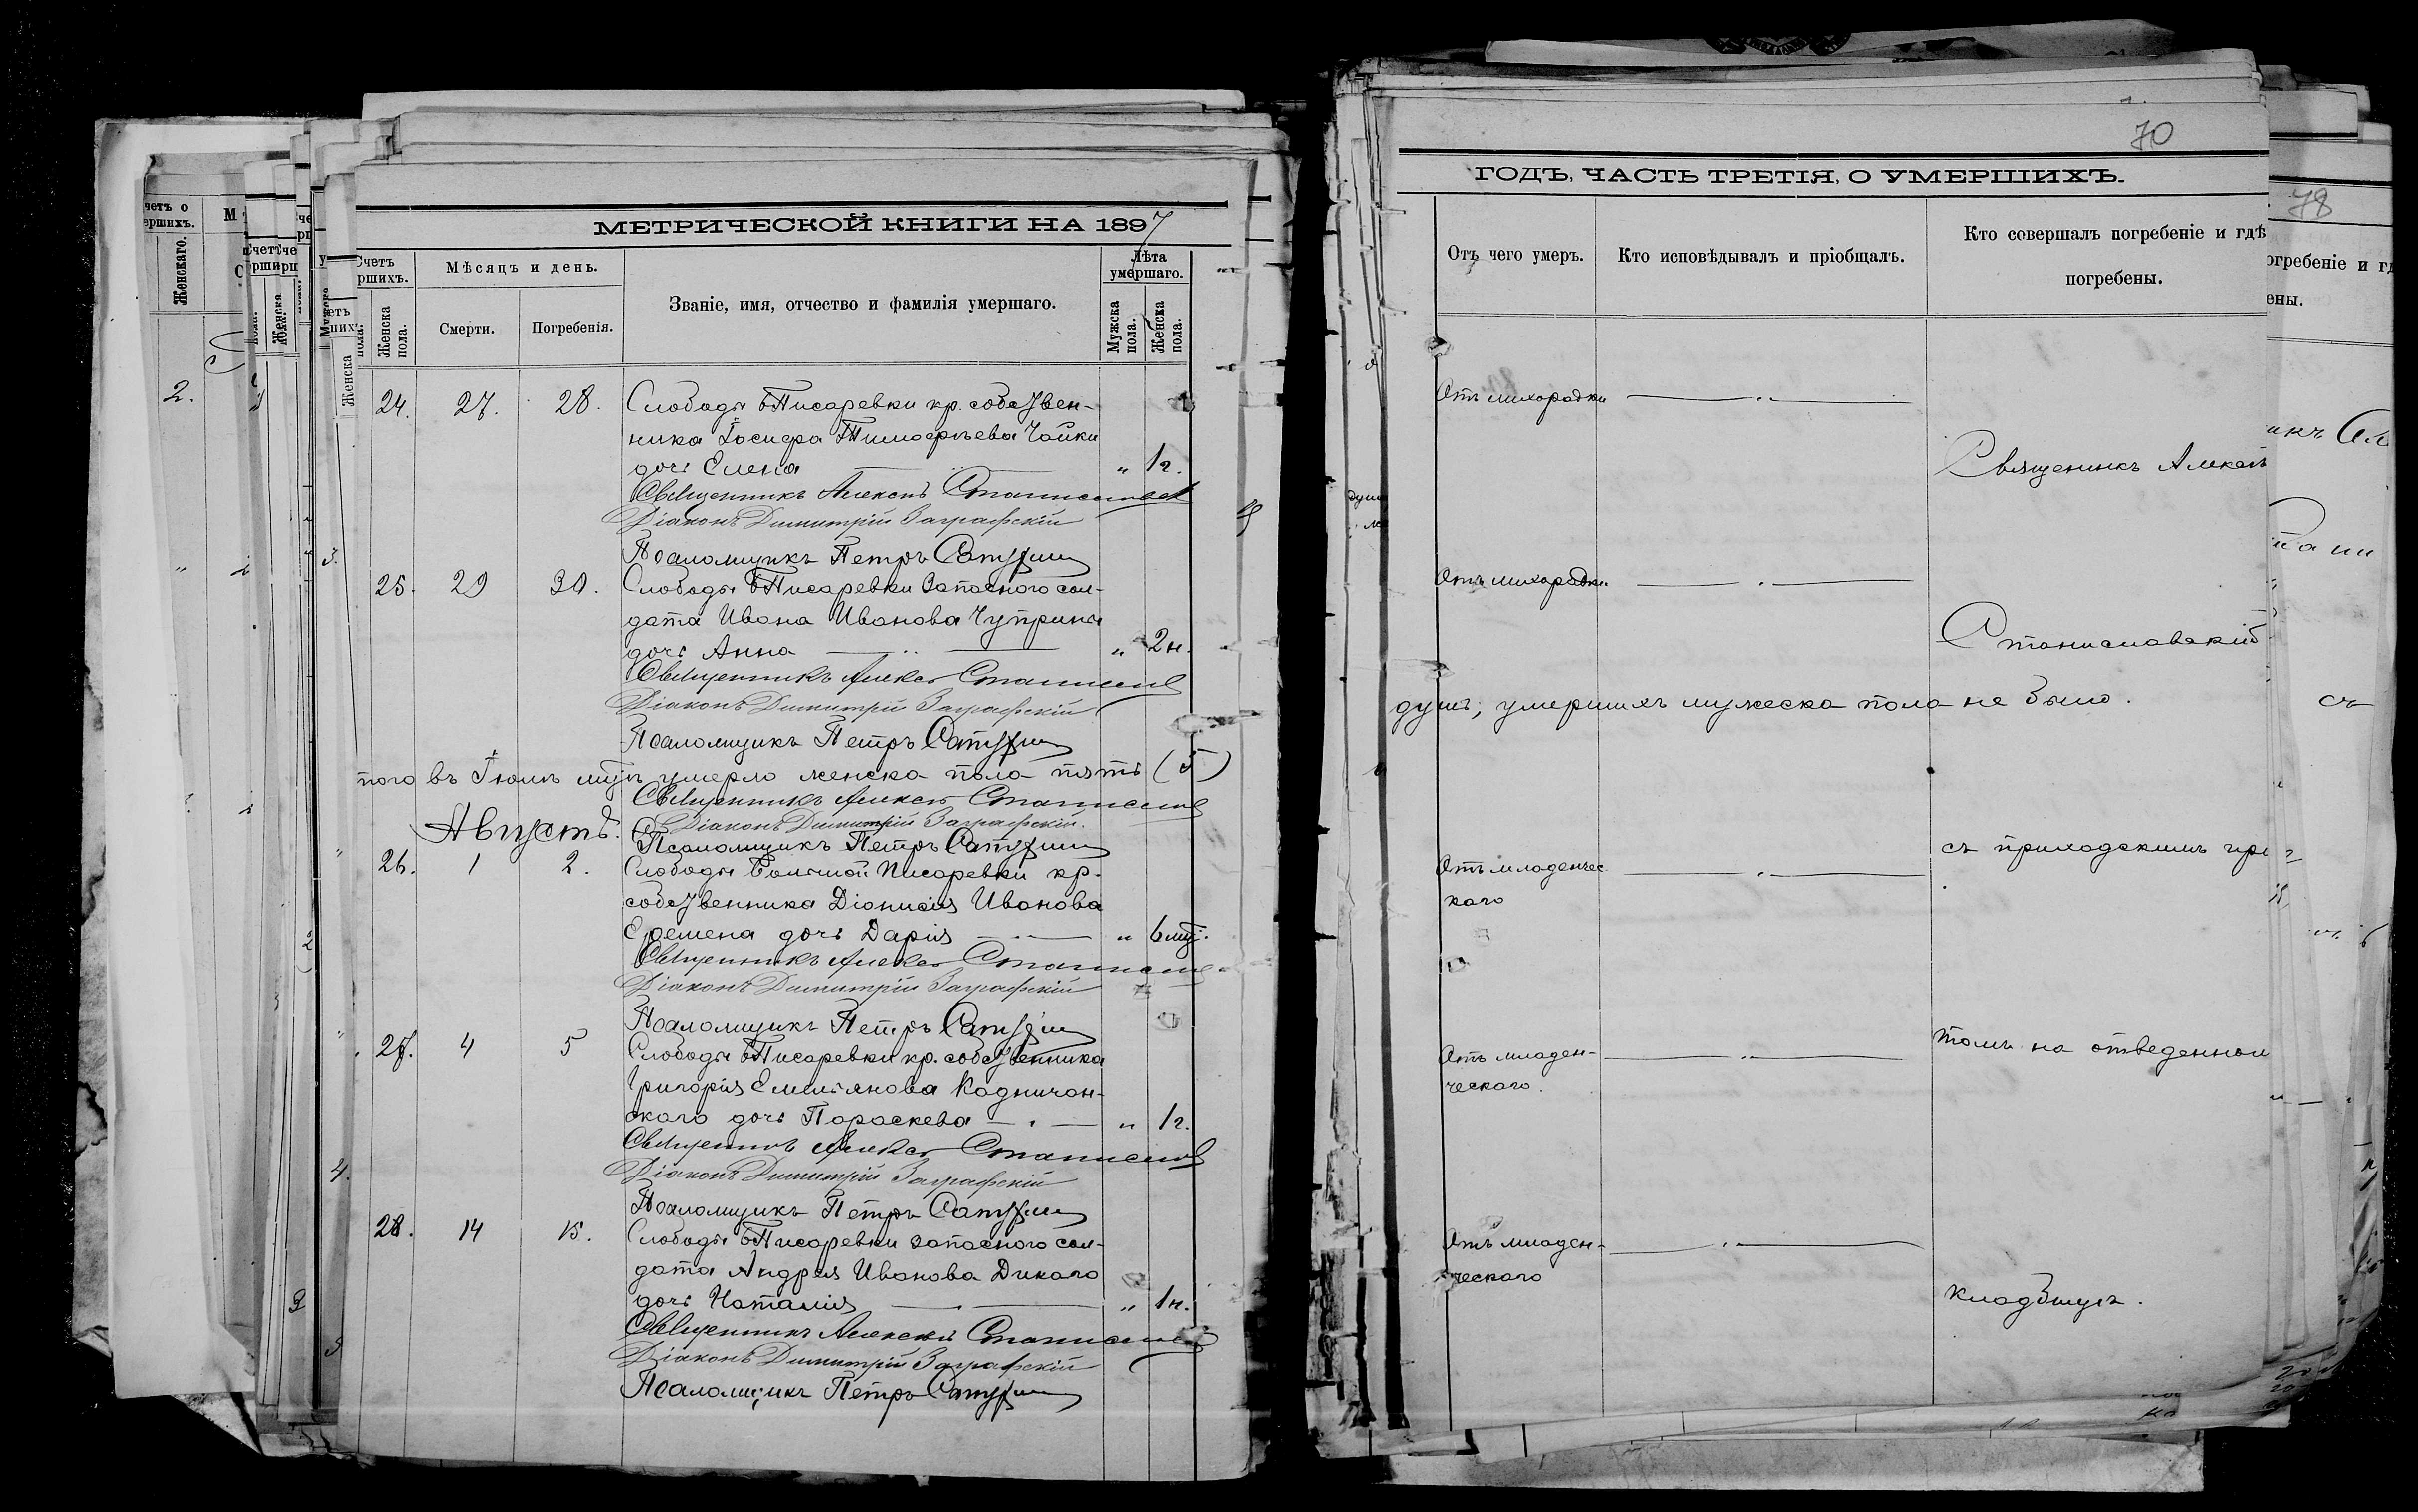 МЕТРИЧЕСКОЙ КНИГИ НА 1897
Счетъ
ршихъ.
Мѣсяцъ и день.
Званіе, имя, отчество и фамилія умершаго.
Лѣта
умершаго.
Женска
пола.
Смерти.
Погребенія.
Мужска
пола.
Женска
пола.
24. 27. 28. Слободы Б Писаревки кр. собствен-
ника Іосифа Тимофѣева Чайки
дочь Елена " 1 г.
Священникъ Алексѣй Станиславскій
Діаконъ Димитрій Заграфскій
Псаломщикъ Петръ
25. 29 30. Слободы Б Писаревки запасного сол-
дата Ивана Иванова Чуприны
дочь Анна " 2 н.
Священникъ Алексѣй Станиславскій
Діаконъ Димитрій Заграфскій
Псаломщикъ Петръ
того въ Іюлѣ мцѣ умерло женска пола пять (5)
Священникъ Алексѣй Станиславскій
Августъ.
Діаконъ Димитрій Заграфскій.
Псаломщикъ Петръ
26. 1 2. Слободы Большой Писаревки кр.
собственника Діонисія Иванова
дочь Дарія " 6 мц.
Священникъ Алексѣй Станиславскій
Діаконъ Димитрій Заграфскій
Псаломщикъ Петръ
27. 4 5 Слободы Б Писаревки кр. собственника
Григорія Емельянова
скаго дочь Параскева " 1 г.
Священникъ Алексѣй Станиславскій
Діаконъ Димитрій Заграфскій
Псаломщикъ Петръ
28. 14 15. Слободы Б Писаревки запасного сол-
дата Андрея Иванова Дикаго
дочь Наталія " 1 н.
Священникъ Алексѣй Станиславскій
Діаконъ Димитрій Заграфскій
Псаломщикъ Петръ
70
ГОДЪ, ЧАСТЬ ТРЕТІЯ, О УМЕРШИХЪ.
Отъ чего умеръ.
Кто исповѣдывалъ и пріобщалъ.
Кто совершалъ погребеніе и гдѣ
погребены.
Отъ лихорадки
Священикъ Алексѣ
Отъ лихорадки
Станиславскій
душъ; умершихъ мужеска пола не было.
съ приходскимъ при
Отъ младенчес
каго
томъ на отведенном
Отъ младен-
ческаго.
Отъ младен-
ческаго
кладбищѣ.
78